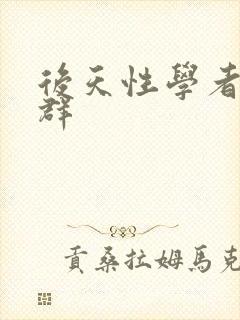 後天性學者
群
貢桑拉姆馬克